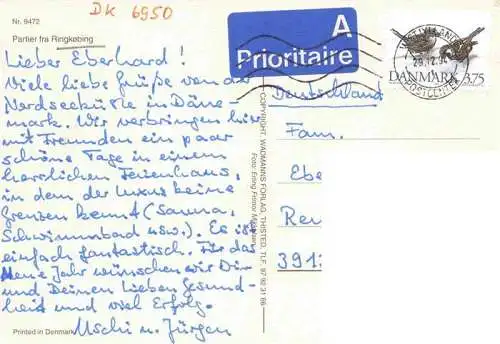 DK 6950
Nr. 9472
Partier fra Ringkøbing
Lieber Eberhard!
Viele liebe Grüße von der
Nordseeküste in Däne-
mark. Wir verbringen hier
mit Freunden ein paar
schöne Tage in einem
herrlichen Ferienhaus,
in dem der Luxus keine
Grenzen kennt (Sauna,
Schwimmbad usw.). Es ist
einfach fantastisch. Für das
Neue Jahr wünschen wir Dir
und Deinen Lieben Gesund-
heit und viel Erfolg.
Uschi u. Jürgen
Printed in Denmark
COPYRIGHT: WADMANNS FORLAG, THISTED, TLF. 97 92 31 85
Foto:
A
Prioritaire
DANMARK 3.75
POSTCENTER
Deutschland
Fam.
Ebe
Ren
391